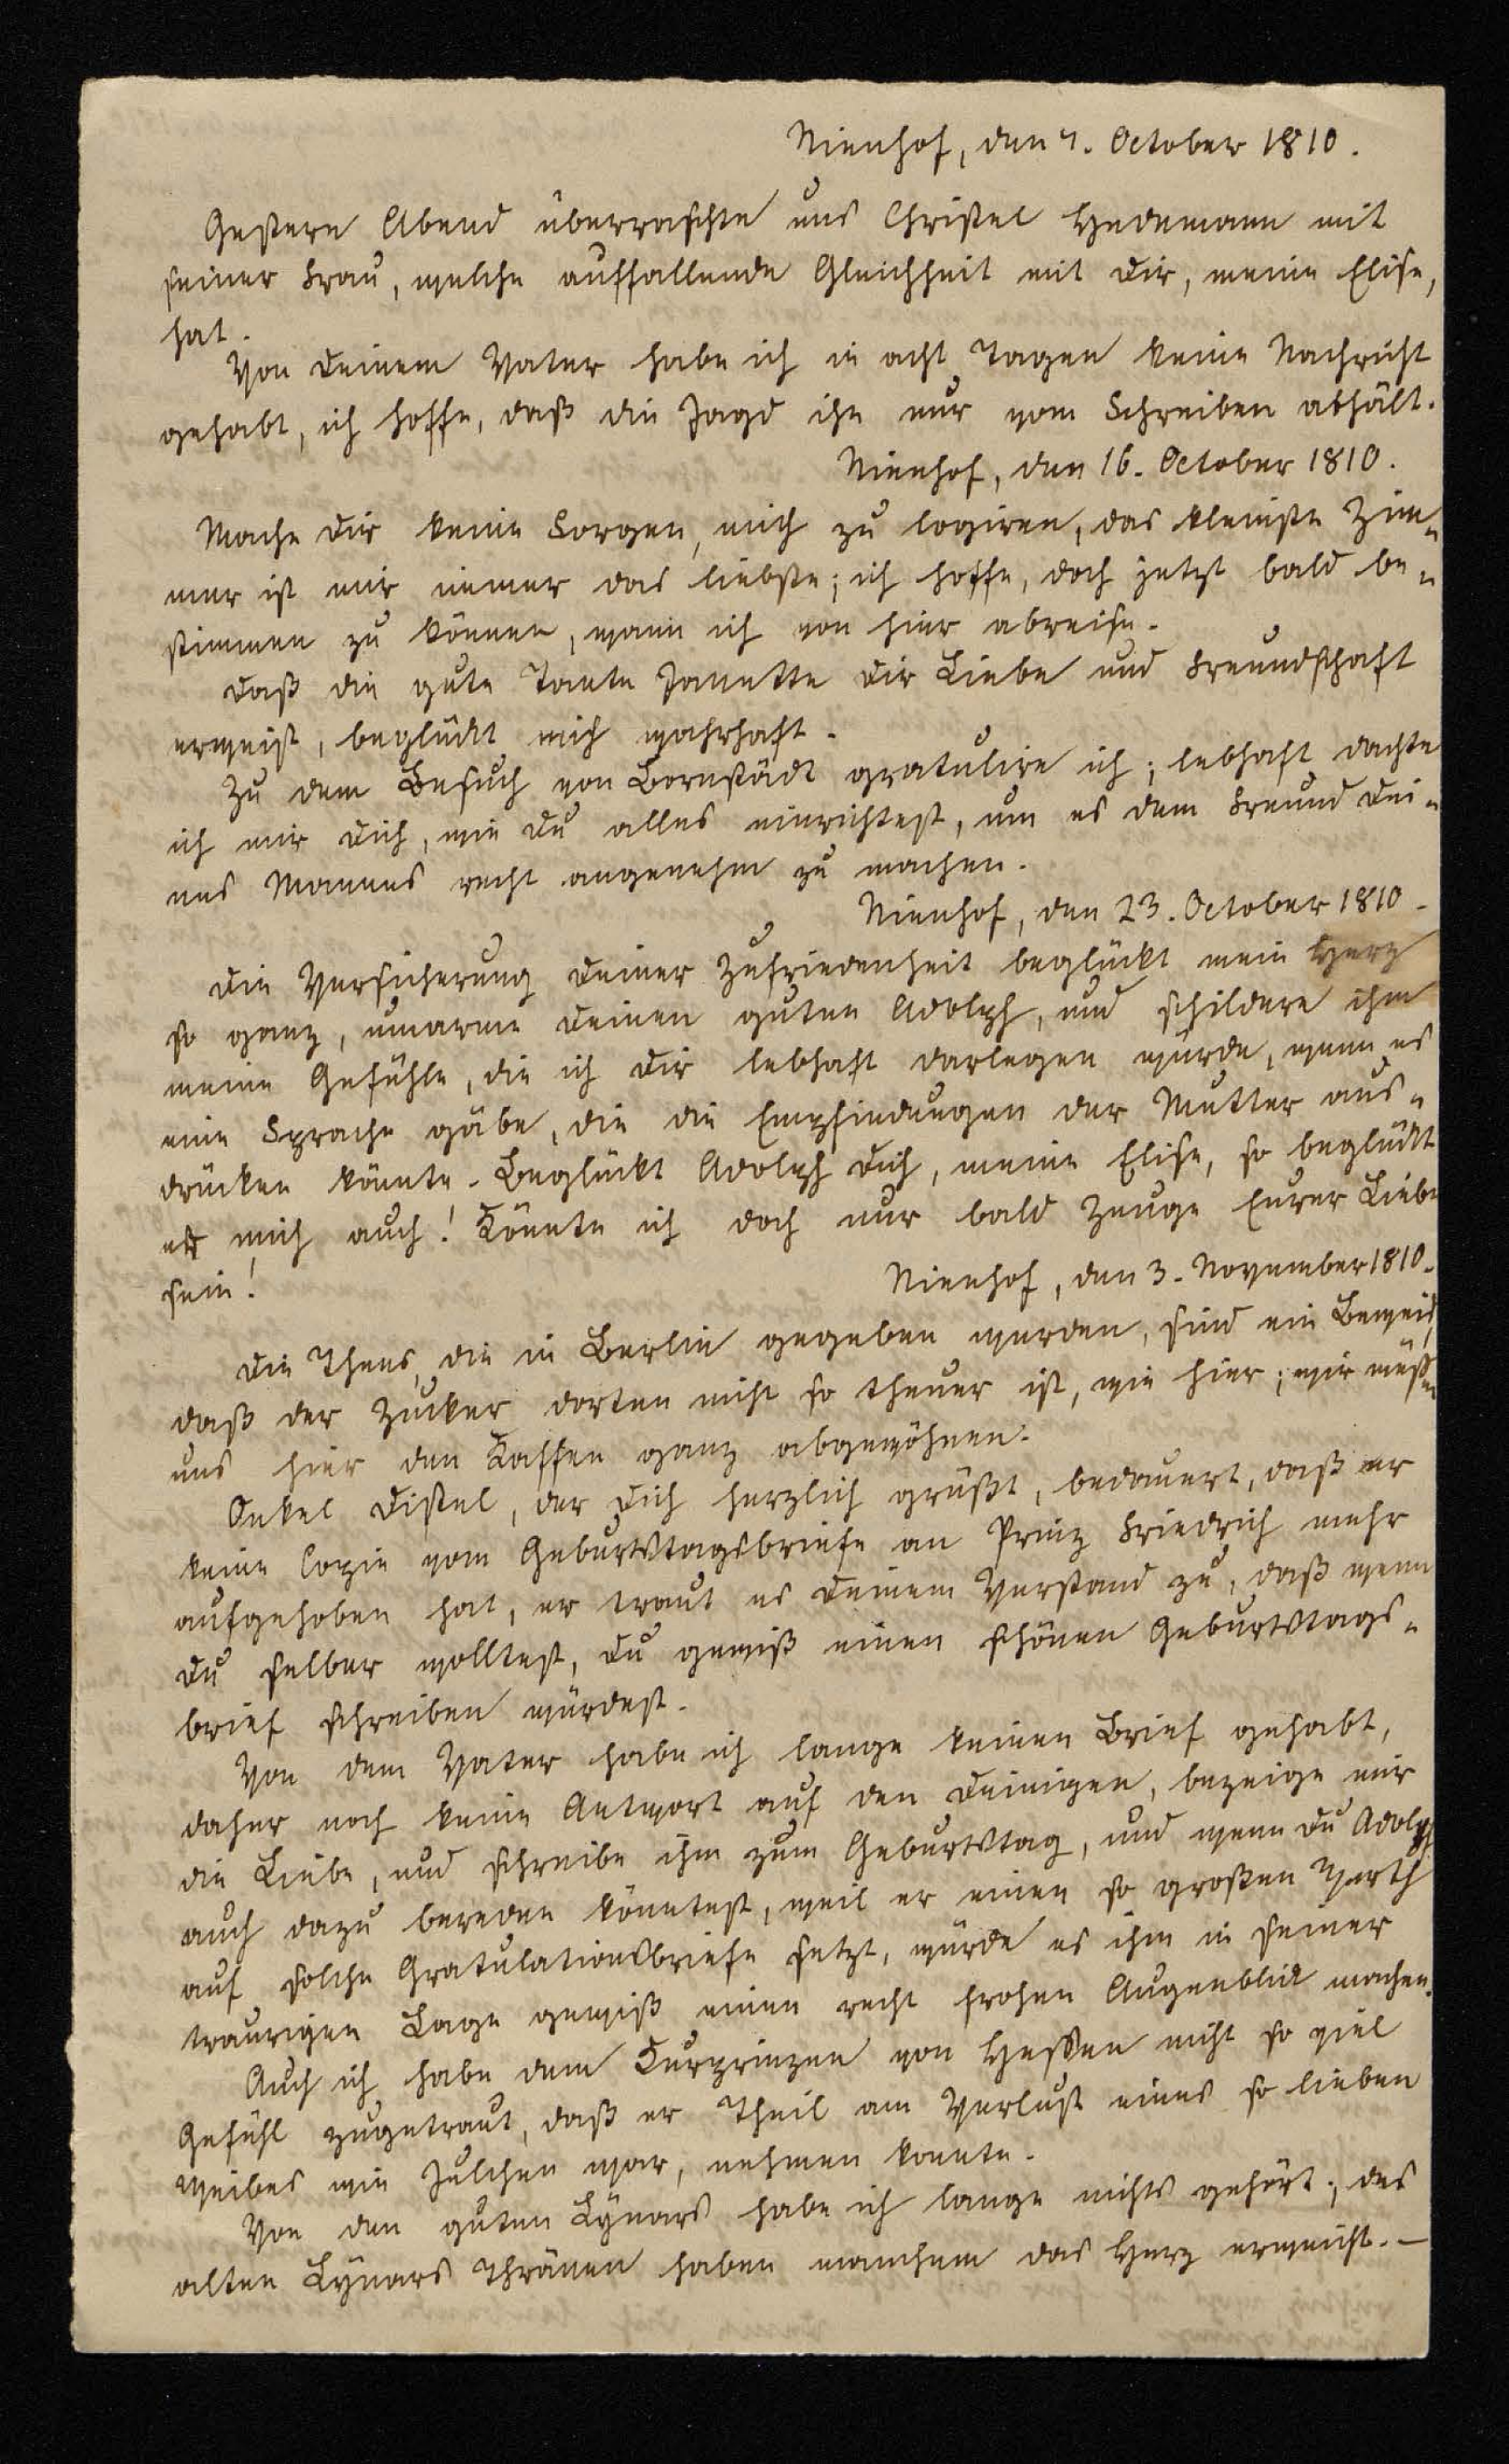 Nienhof, den 7. October 1810.
Gestern Abend überraschte uns Christel Hedemann mit
seiner Frau, welche auffallende Gleichheit mit Dir, meine Elise,
hat.
Von Deinem Vater habe ich in acht Tagen keine Nachricht
gehabt, ich hoffe, daß die Jagd ihn nur vom Schreiben abhält.
Nienhof, den 16. October 1810.
Mache Dir keine Sorgen, mich zu logiren, das kleinste Zim-
mer ist mir immer das liebste; ich hoffe, doch jetzt bald be-
stimmen zu können, wann ich von hier abreise.
Daß die gute Tante Janette Dir Liebe und Freundschaft
erweist, beglückt mich wahrhaft.
Zu dem Besuch von Bornstädt gratulire ich; lebhaft dachte
ich mir Dich, wie Du alles einrichtest, um es dem Freund Dei-
nes Mannes recht angenehm zu machen.
Nienhof, den 23. October 1810.
Die Versicherung Deiner Zufriedenheit beglückt mein Herz
so ganz, umarme Deinen guten Adolph, und schildere ihm
meine Gefühle, die ich Dir lebhaft darlegen würde, wenn es
eine Sprache gäbe, die die Empfindungen der Mutter aus-
drücken könnte. Beglückt Adolph Dich, meine Elise, so beglückt
er mich auch! Könnte ich doch nur bald Zeuge Eurer Liebe
sein!
Nienhof, den 3. November 1810.
Die Thees, die in Berlin gegeben werden, sind ein Beweis,
daß der Zucker dorten nicht so theuer ist, wie hier; wir müssen
uns hier den Kaffee ganz abgewöhnen.
Onkel Distel, der Dich herzlich grüßt, bedauert, daß er
keine Copie vom Geburtstagsbriefe an Prinz Friedrich mehr
aufgehoben hat, er traut es Deinem Verstand zu, daß wenn
Du selber wolltest, Du gewiß einen schönen Geburtstags-
brief schreiben würdest.
Von dem Vater habe ich lange keinen Brief gehabt,
daher noch keine Antwort auf den Deinigen, bezeige mir
die Liebe, und schreibe ihm zum Geburtstag, und wenn Du Adolph
auch dazu bereden könntest, weil er einen so großen Werth
auf solche Gratulationsbriefe setzt, würde es ihm in seiner
traurigen Lage gewiß einen recht frohen Augenblick machen.
Auch ich habe dem Kurprinzen von Hessen nicht so viel
Gefühl zugetraut, daß er Theil am Verlust eines so lieben
Weibes wie Julchen war, nehmen konnte.
Von den guten Lynars habe ich lange nichts gehört; des
alten Lynars Thränen haben manchem das Herz erweicht. –